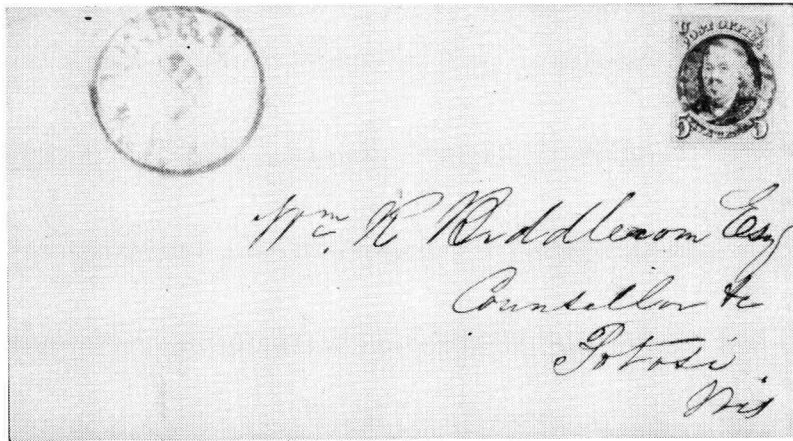 POST OFFICE
5 5
Wm. R Biddlecom Esq
Counsellor &c
Potosi
Wis